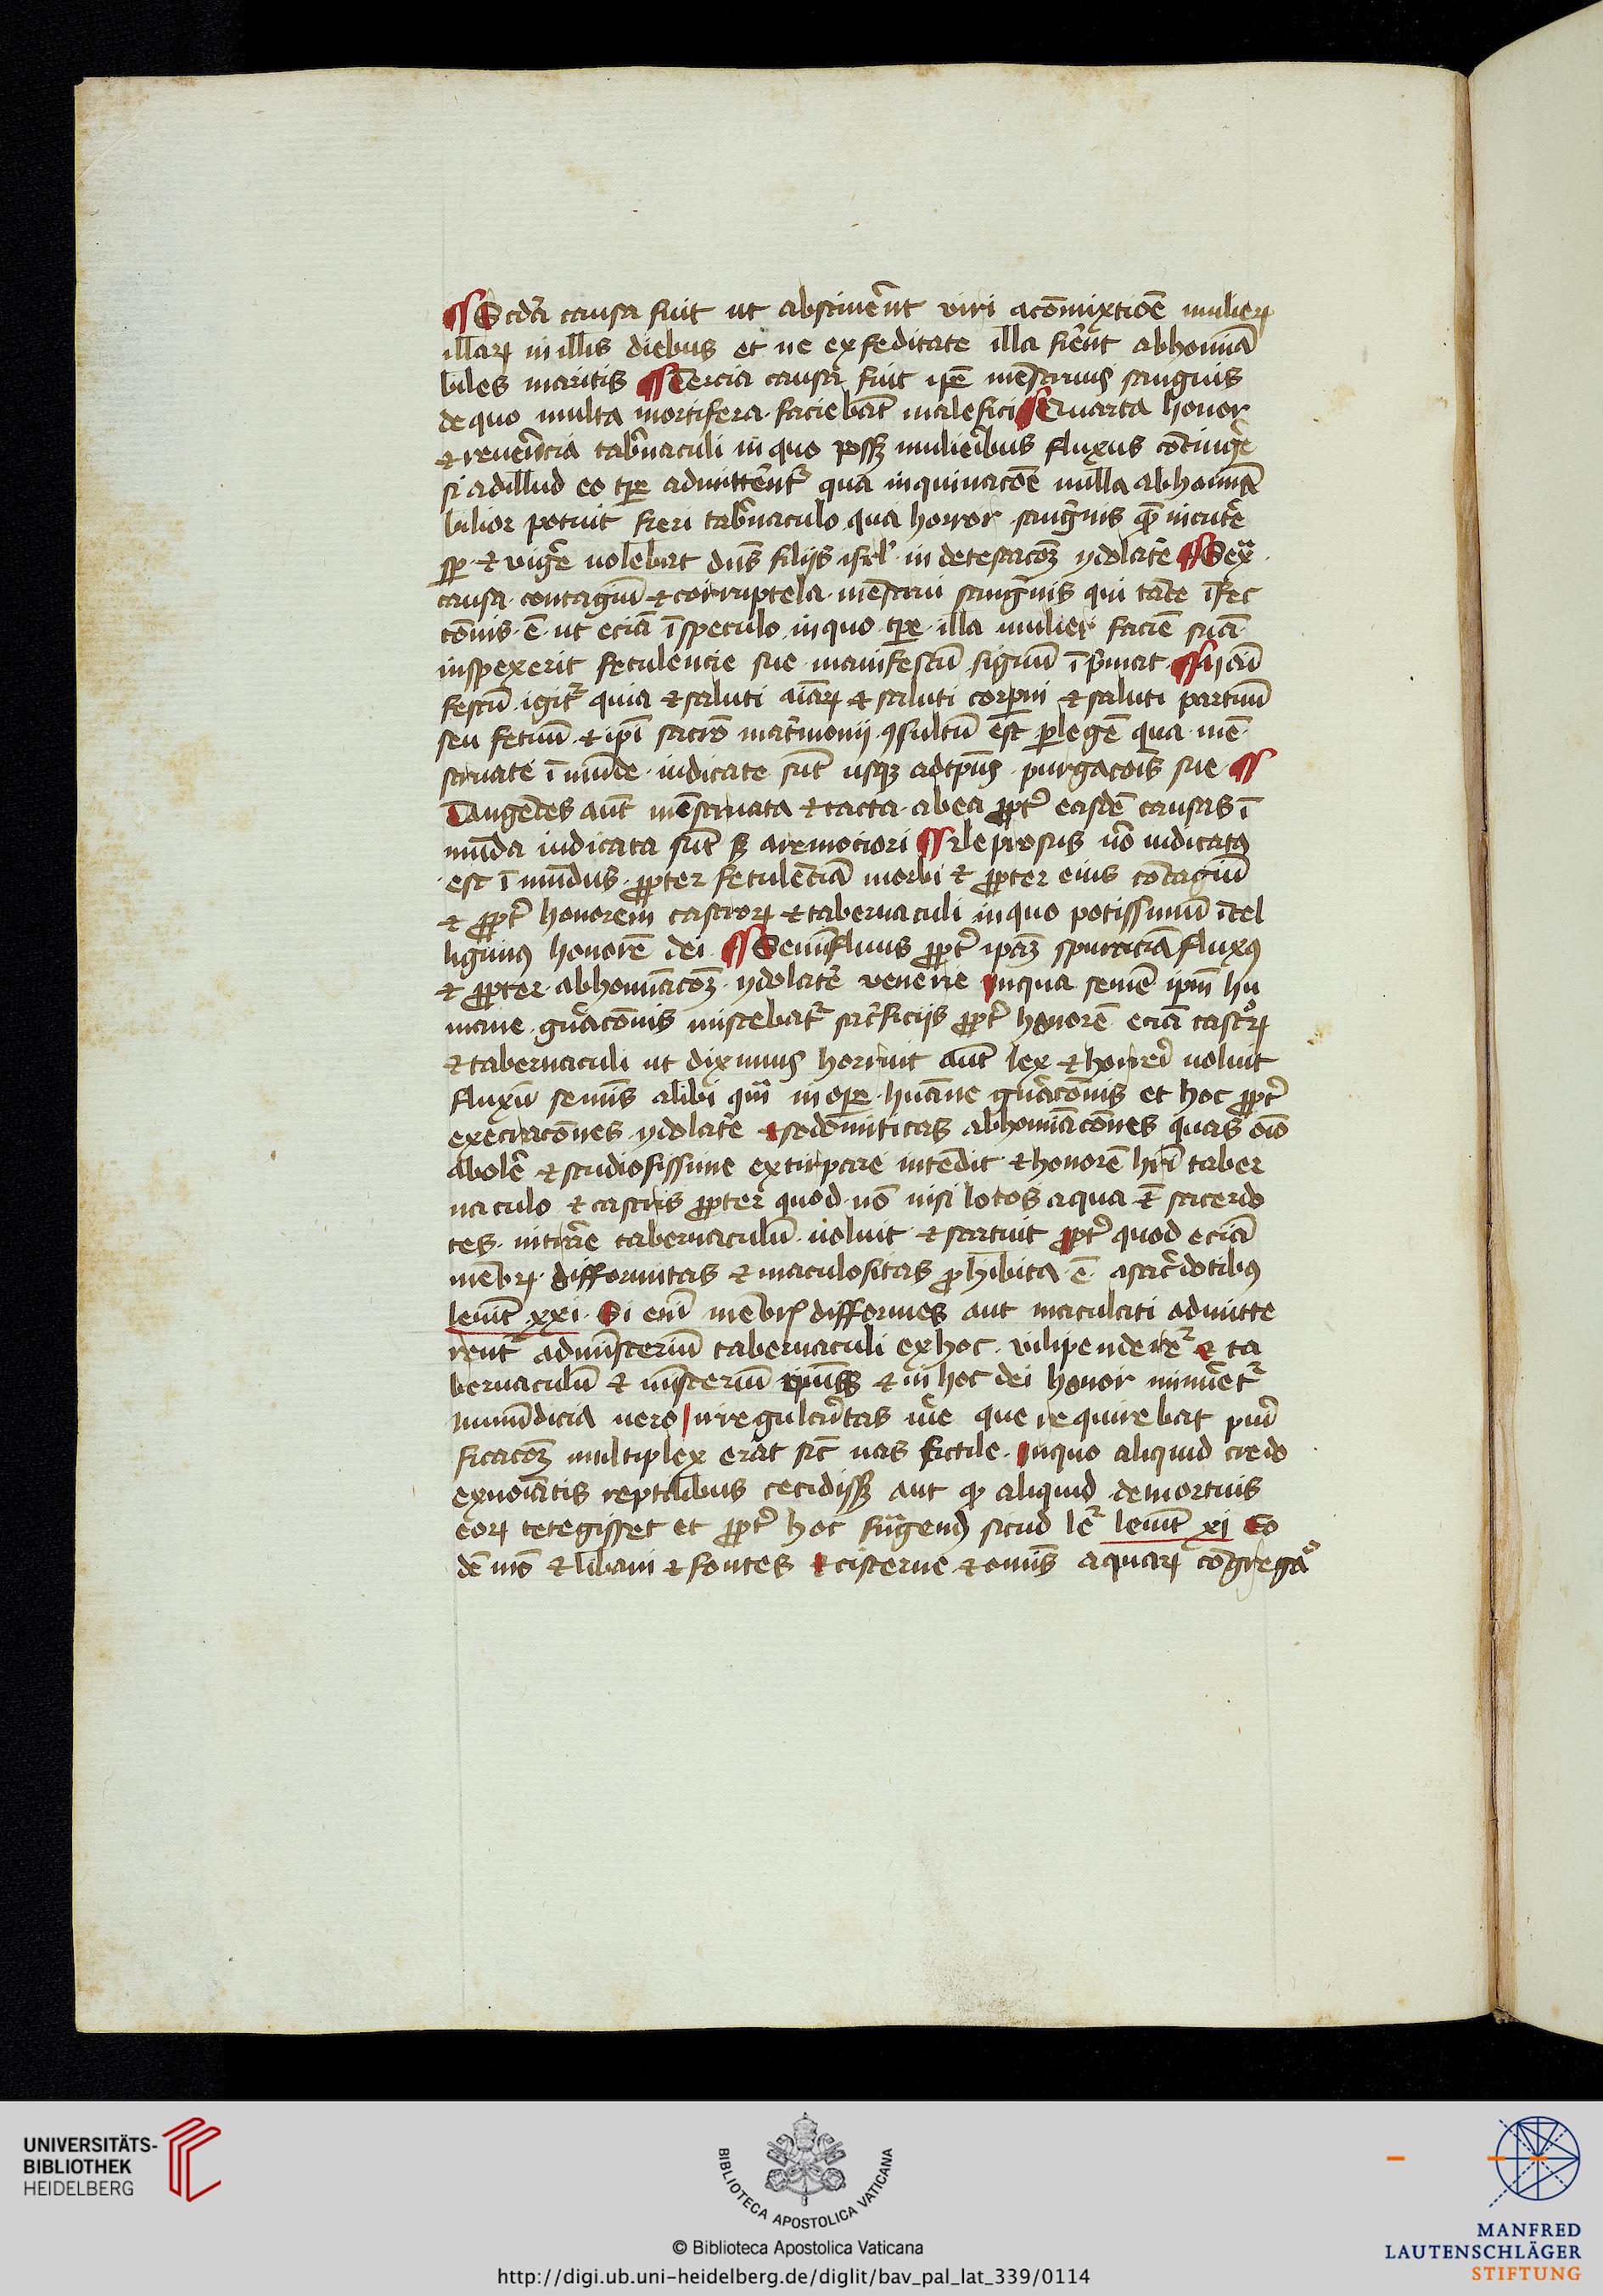 Scda causa fuit ut abstinerent viri a comixtioe mulierꝝ
illarꝝ in illis diebus et ne ex feditate illa fierent abhomina
biles maritis Tercia causa fuit ipe menstruus sanguis
de quo multa mortifera faciebant malefici Quarta honor
et reuerencia tabernaculi in quo possꝫ mulieribus fluxus contingere
si ad illud eo tpe admitterentur qua inquinacoe nulla abhomina
bilior potuit fieri tabernaculo qua horror sanguinis incutere
sp et vigere uolebat dns filijs isrl in detestacoꝫ ydolatrie Sexta
causa contagium et corruptela menstrui sanguinis qui tante infec
tionis e ut ecia i speculo in quo tpe illa mulier facie sua
inspexerit feculencie sue manifestu signum imprimat
festu igitur quia et saluti aiarꝝ et saluti corpori et saluti partium
seu fetuum et ipi sacro matrimonij consultu est per lege qua me
struate i munde iudicate sunt usqꝫ ad tpus purgacois sue
Tangentes aut menstruata et tacta ab ea propter easde causas i
munda iudicata sunt sꝫ a remociori leprosus uero iudicatus
est i mundus propter feculencia morbi et propter eius contagium
et propter honorem castrorꝝ et tabernaculi in quo potissimum intel
ligimus honore dei Seminifluus propter ipaꝫ spurcicia fluxus
et propter abhominacoꝫ ydolatrie venerie in qua seme ipm hu
mane generacionis miscebatur sacrificijs propter honore ecia castrorꝝ
et tabernaculi ut diximus horruit aut lex et horreri uoluit
fluxu seminis alibi quam in ope humane generacionis et hoc propter
execraciones ydolatrie et sodomiticas abhominaciones quas oio
abolere et studiosissime extirpare intendit et honore hri taber
naculo et castris propter quod no nisi lotos aqua sacerdo
tes intrare tabernaculu uoluit et statuit propter quod ecia
membrꝝ difformitas et maculositas prohibita e a sacerdotibus
leuit xxi Si eni membris difformes aut maculati admitte
rentur ad ministerium tabernaculi ex hoc vilipenderetur et ta
bernaculu et ministerium ipius et in hoc dei honor minueretur
Immundicia uero irregularitas iure que requirebat puri
ficacoꝫ multiplex erat sic uas fictile in quo aliquid credo
ex noiatis reptilibus cecidissꝫ aut quod aliquid de mortuis
eorꝝ tetegisset et propter hoc frangend sicud le leuit xi Eo
de mo et libani et fontes et cisterne et omnis aquarꝝ congrega
UNIVERSITÄTS-
BIBLIOTHEK
HEIDELBERG
BIBLIOTECA APOSTOLICA VATICANA
© Biblioteca Apostolica Vaticana
http://digi.ub.uni-heidelberg.de/diglit/bav_pal_lat_339/0114
MANFRED
LAUTENSCHLÄGER
STIFTUNG